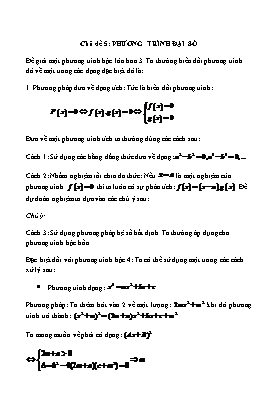 Chủ đề 5: PHƯƠNG TRÌNH ĐẠI SỐ
Để giải một phương trình bậc lớn hơn 3. Ta thường biến đổi phương trình
đó về một trong các dạng đặc biệt đó là:
1. Phương pháp đưa về dạng tích: Tức là biến đổi phương trình:
F(x)=0⇔f(x).g(x)=0⇔[f(x)=0
g(x)=0
Đưa về một phương trình tích ta thường dùng các cách sau:
Cách 1: Sử dụng các hằng đẳng thức đưa về dạng: a²−b²=0,a³−b³=0,...
Cách 2: Nhẩm nghiệm rồi chia đa thức: Nếu x=a là một nghiệm của
phương trình f(x)=0 thì ta luôn có sự phân tích: f(x)=(x−a)g(x). Để
dự đoán nghiệm ta dựa vào các chú ý sau:
Chú ý:
Cách 3: Sử dụng phương pháp hệ số bất định. Ta thường áp dụng cho
phương trình bậc bốn.
Đặc biệt đối với phương trình bậc 4: Ta có thể sử dụng một trong các cách
xử lý sau:
• Phương trình dạng: x⁴=ax²+bx+c
Phương pháp: Ta thêm bớt vào 2 vế một lượng: 2mx²+m² khi đó phương
trình trở thành: (x²+m)²=(2m+a)x²+bx+c+m²
Ta mong muốn vế phải có dạng: (Ax+B)²
⇔{2m+a>0
Δ=b²−4(2m+a)(c+m²)=0 ⇒m